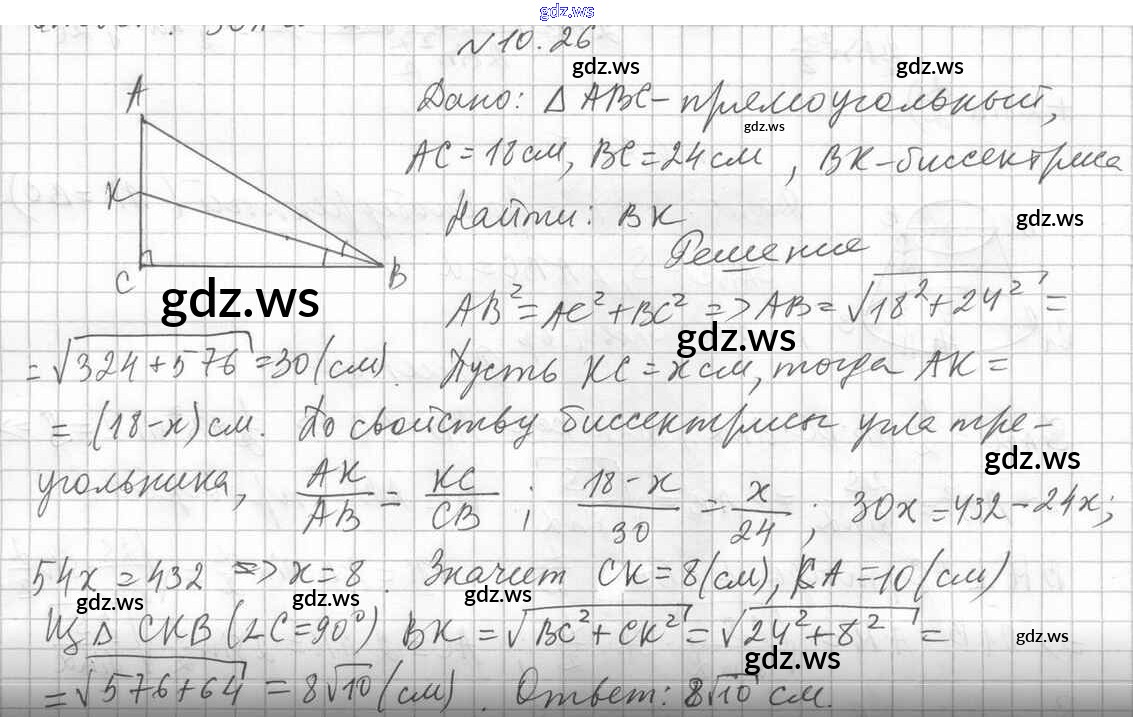 gdz.ws
№10.26
gdz.ws gdz.ws
A
Дано: △ ABC - прямоугольный,
gdz.ws
AC = 18 см, BC = 24 см, BK - биссектриса
K
Найти: BK
gdz.ws
Решение
C B
gdz.ws
AB² = AC² + BC² => AB = √18² + 24² =
gdz.ws
= √324 + 576 = 30 (см). Пусть KC = x см, тогда AK =
= (18 - x) см. По свойству биссектрисы угла тре-
gdz.ws
угольника, AK/AB = KC/CB ; 18 - x/30 = x/24 ; 30x = 432 - 24x;
54x = 432 => x = 8. Значит CK = 8 (см), KA = 10 (см)
gdz.ws gdz.ws gdz.ws
Из △ CKB (∠C = 90°) BK = √BC² + CK² = √24² + 8² =
gdz.ws gdz.ws
= √576 + 64 = 8√10 (см). Ответ: 8√10 см.